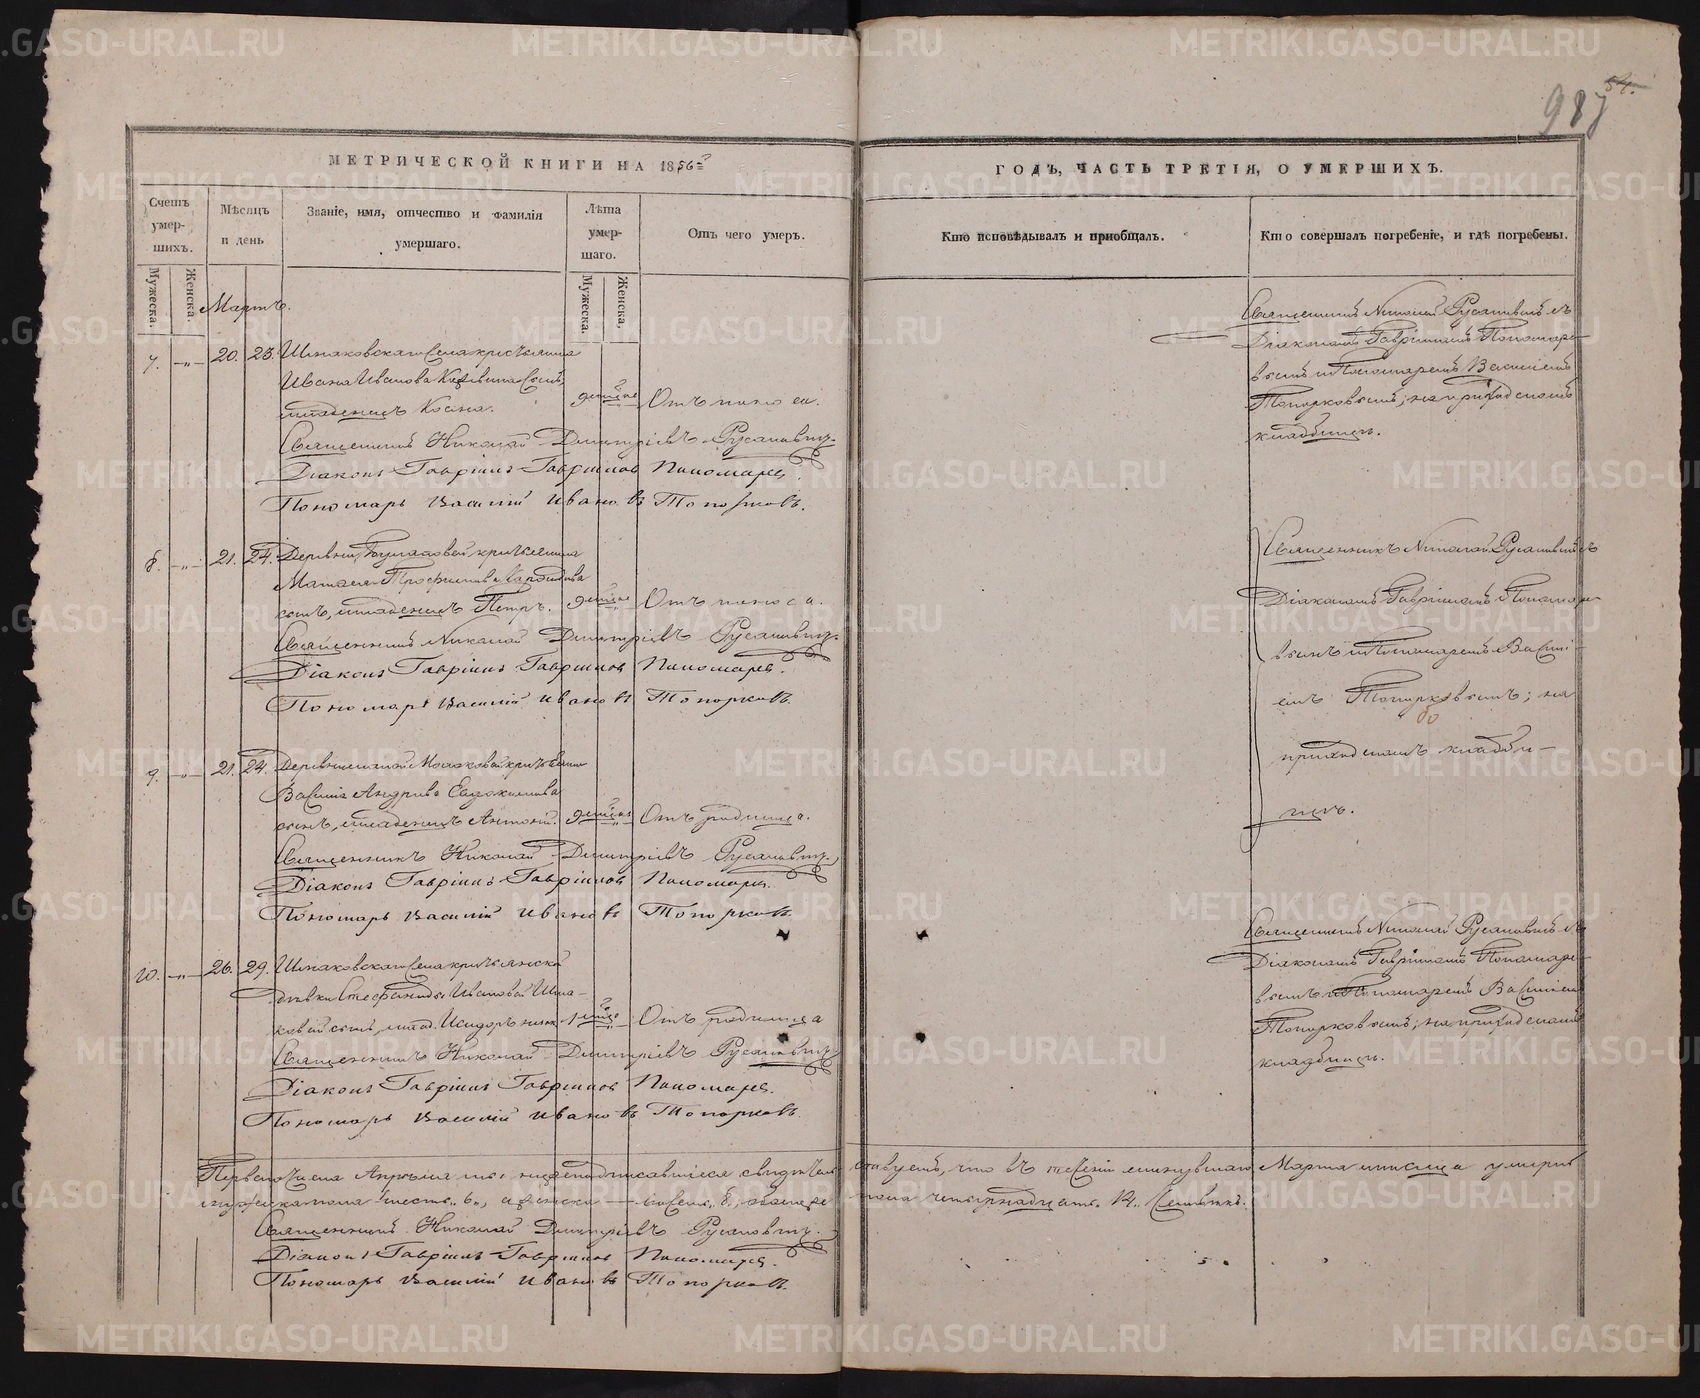 54.
987
МЕТРИЧЕСКОЙ КНИГИ НА 1856й
ГОДЪ, ЧАСТЬ ТРЕТІЯ, О УМЕРШИХЪ.
Счетъ умер-шихъ.
Мужеска.
Женска.
Мѣсяцъ и день
Званіе, имя, отчество и фамилія умершаго.
Лѣта умер-шаго.
Мужеска.
Женска.
Отъ чего умеръ.
Кто исповѣдывалъ и приобщалъ.
Кто совершалъ погребеніе, и гдѣ погребены.
Мартъ.
7. -„- 20. 23. Шмаковскаго села крестьянина
Ивана Иванова сынъ,
младенецъ Косма. Отъ поноса.
Священникъ Николай Димитріевъ Русановъ
Діаконъ Гавріилъ Гавриловъ Пономарев.
Пономарь Василій Ивановъ Топорковъ.
Священникъ Николай Русановъ съ
Діакономъ Гавріиломъ Пономаре-
вымъ и Пономаремъ Василіемъ
Топорковымъ; на приходскомъ
кладбищѣ.
8. -„- 21. 24. Деревни крестьянина
Трофимова
сынъ, младенецъ Петръ. Отъ поноса.
Священникъ Николай Димитріевъ Русановъ
Діаконъ Гавріилъ Гавриловъ Пономарев.
Пономарь Василій Ивановъ Топорковъ.
Священникъ Николай Русановъ съ
Діакономъ Гавріиломъ Пономаре-
вымъ и Пономаремъ Васили-
емъ Топорковымъ; на
приходскомъ кладби-
щѣ.
9. -„- 21. 24. Деревни крестьянина
Василія Андреева Евдокимова
сынъ, младенецъ Антоній. Отъ родимца.
Священникъ Николай Димитріевъ Русановъ
Діаконъ Гавріилъ Гавріиловъ Пономарев.
Пономарь Василій Ивановъ Топорковъ
10. -„- 26. 29. Шмаковскаго села крестьянской
дѣвки Стефаниды Ивановой Шма-
ковой сынъ, млад. Исидоръ Отъ родимца
Священникъ Николай Димитріевъ Русановъ
Діаконъ Гавріилъ Гавриловъ Пономарев.
Пономарь Василій Ивановъ Топорковъ.
Священникъ Николай Русановъ съ
Діакономъ Гавріиломъ Пономаре-
вымъ и Пономаремъ Василіемъ
Топорковымъ; на приходскомъ
кладбищѣ.
Перваго числа Апрѣля мы нижеподписавшіеся свидѣтель-ствуемъ, что въ теченіи минувшаго Марта мѣсяца умерло
мужеска пола шесть „6„, а женска восемь „8„, четырнадцать „14„
Священникъ Николай Димитріевъ Русановъ
Діаконъ Гавріилъ Гавриловъ Пономарев.
Пономарь Василій Ивановъ Топорковъ.
METRIKI.GASO-URAL.RU